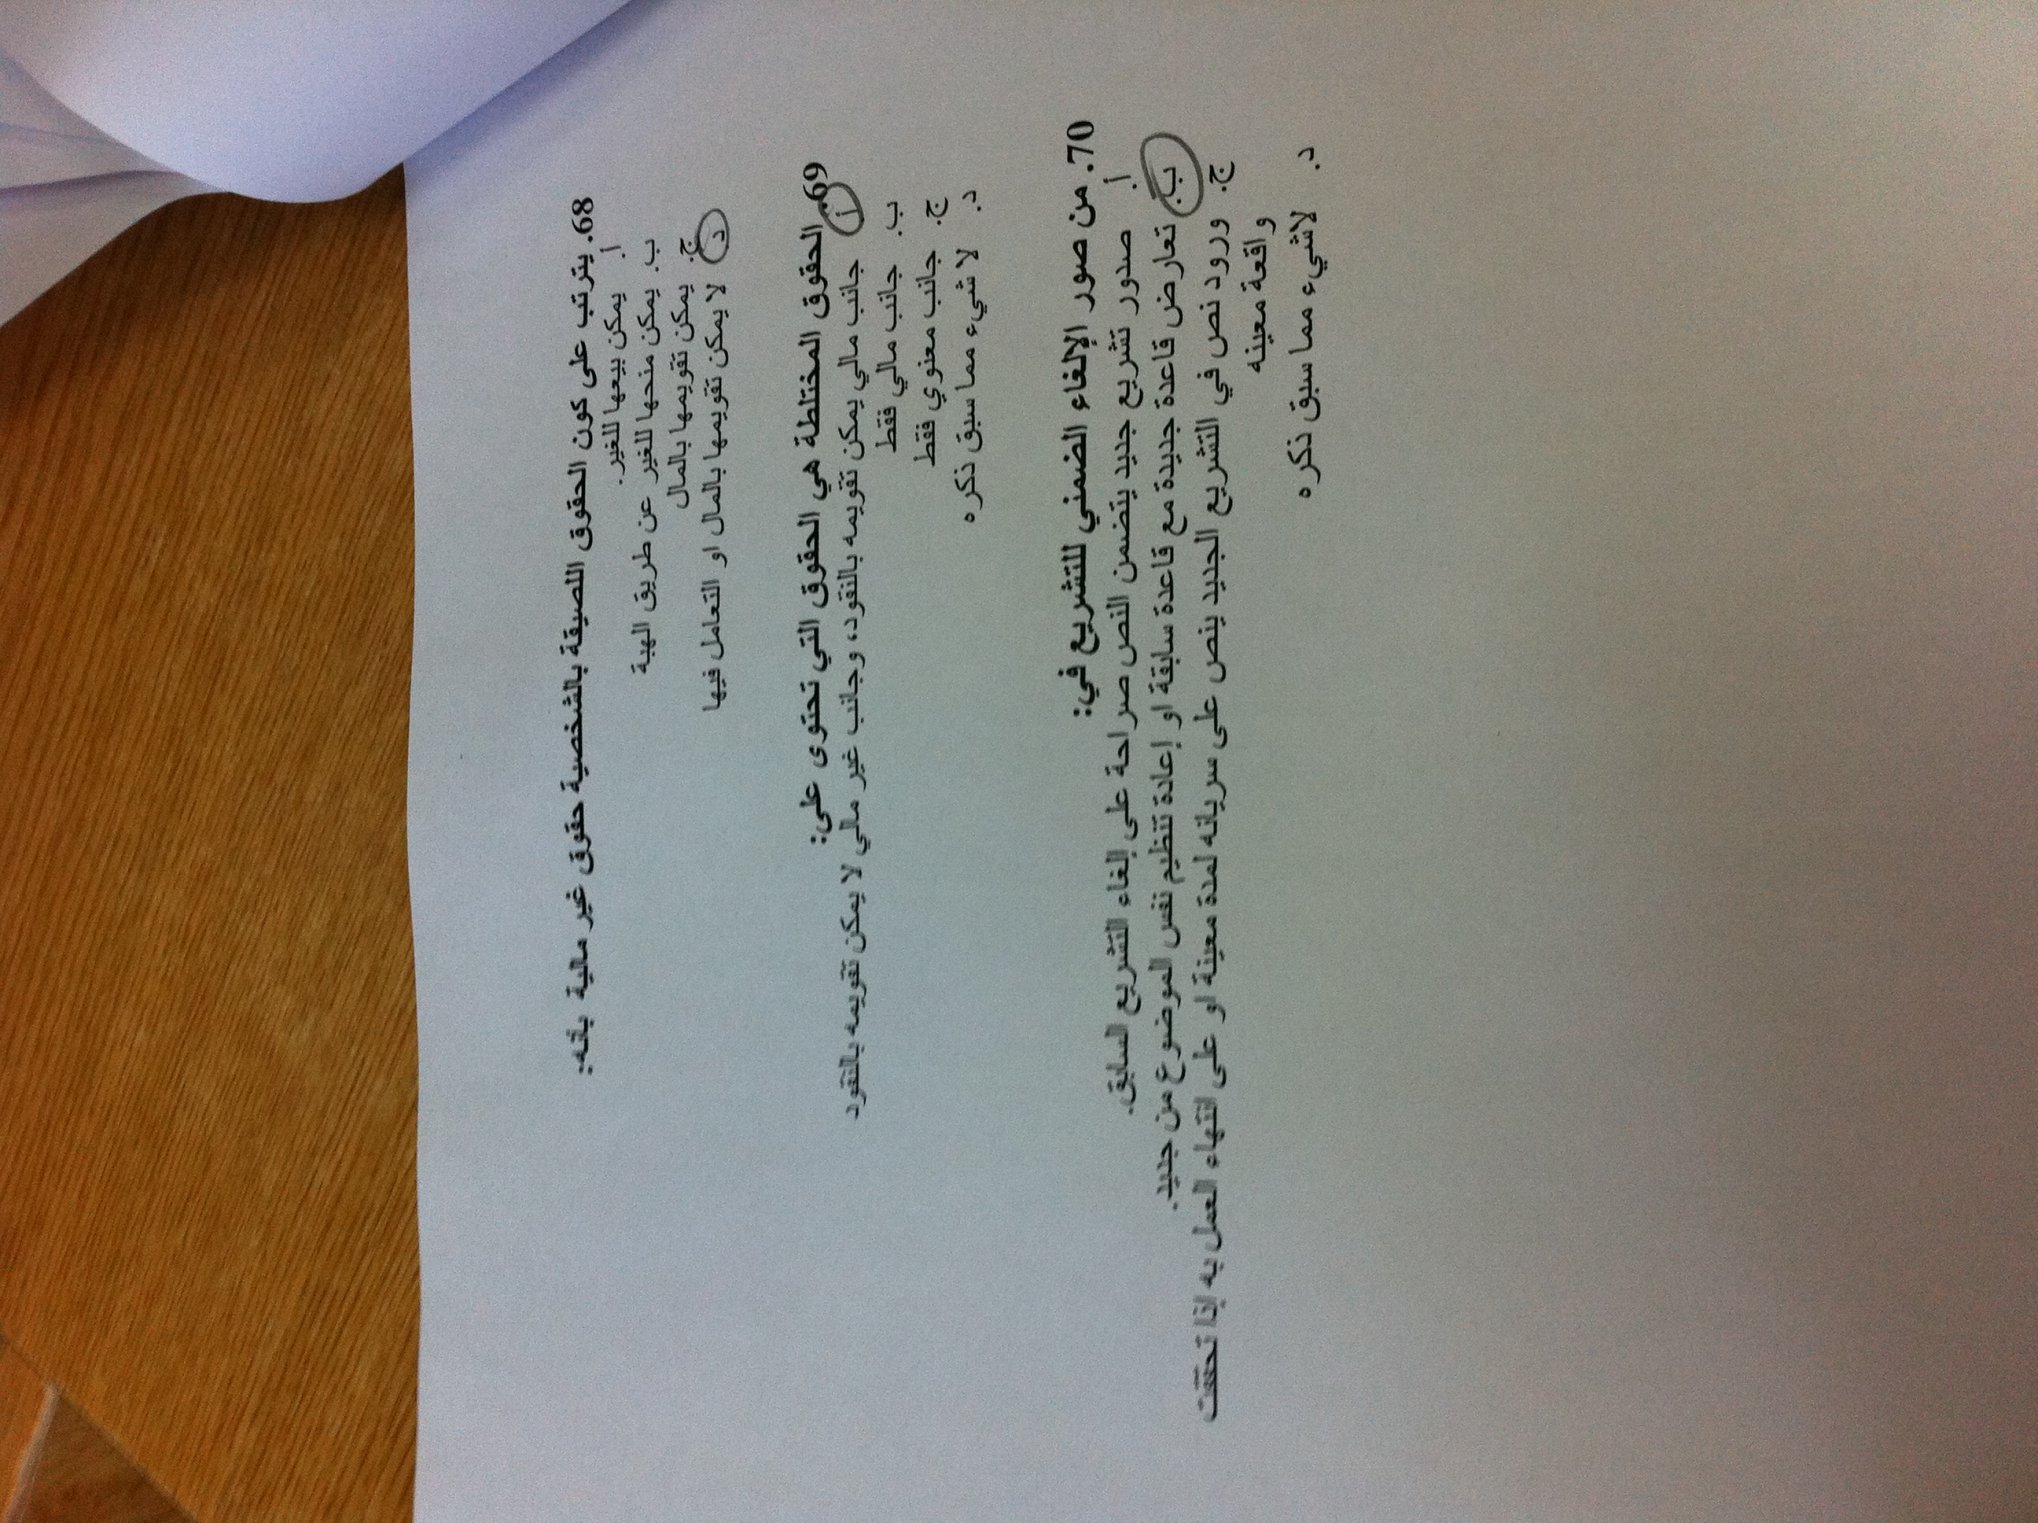 68. يترتب على كون الحقوق اللصيقة بالشخصية حقوق غير مالية بانه:
أ. يمكن بيعها للغير.
ب. يمكن منحها للغير عن طريق الهبة
ج. يمكن تقويمها بالمال
د. لا يمكن تقويمها بالمال او التعامل فيها
69. الحقوق المختلطة هي الحقوق التي تحتوى على:
أ. جانب مالي يمكن تقويمه بالنقود، وجانب غير مالي لا يمكن تقويمه بالنقود
ب. جانب مالي فقط
ج. جانب معنوي فقط
د. لا شيء مما سبق ذكره
70. من صور الإلغاء الضمني للتشريع في:
أ. صدور تشريع جديد يتضمن النص صراحة على إلغاء التشريع السابق.
ب. تعارض قاعدة جديدة مع قاعدة سابقة او إعادة تنظيم نفس الموضوع من جديد.
ج. ورود نص في التشريع الجديد ينص على سريانه لمدة معينة او على انتهاء العمل به اذا تحققت
واقعة معينه
د. لاشيء مما سبق ذكره